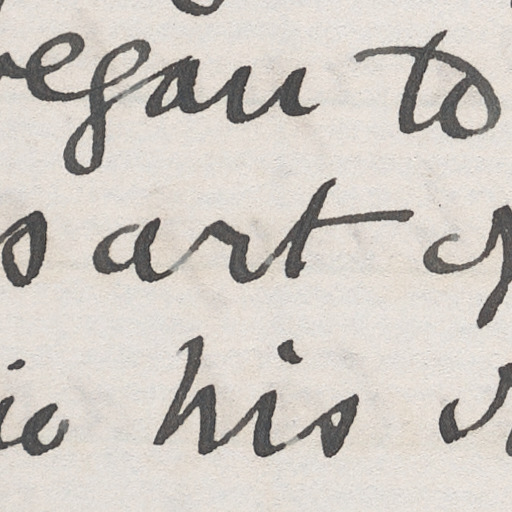 began to
s art of
his